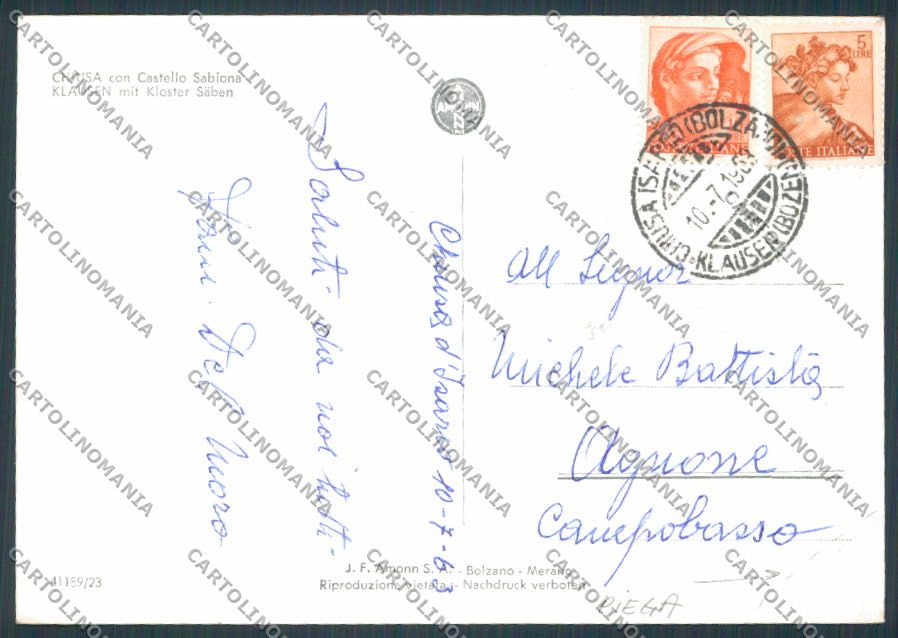 CHIUSA con Castello Sabiona
KLAUSEN mit Kloster Säben
AMONN
5
LIRE
POSTE ITALIANE
POSTE ITALIANE
CHIUSA ISARCO (BOLZANO)
KLAUSEN (BOZEN)
10.-7.1963
Saluti da noi tutti-
Fam. Del Moro
Chiusa d'Isarco 10-7-63
All Signor
Michele Battista
Agnone
Campobasso
41189/23
J. F. Amonn S. A. - Bolzano - Merano
Riproduzione vietata - Nachdruck verboten
PIEGA
CARTOLINOMANIA